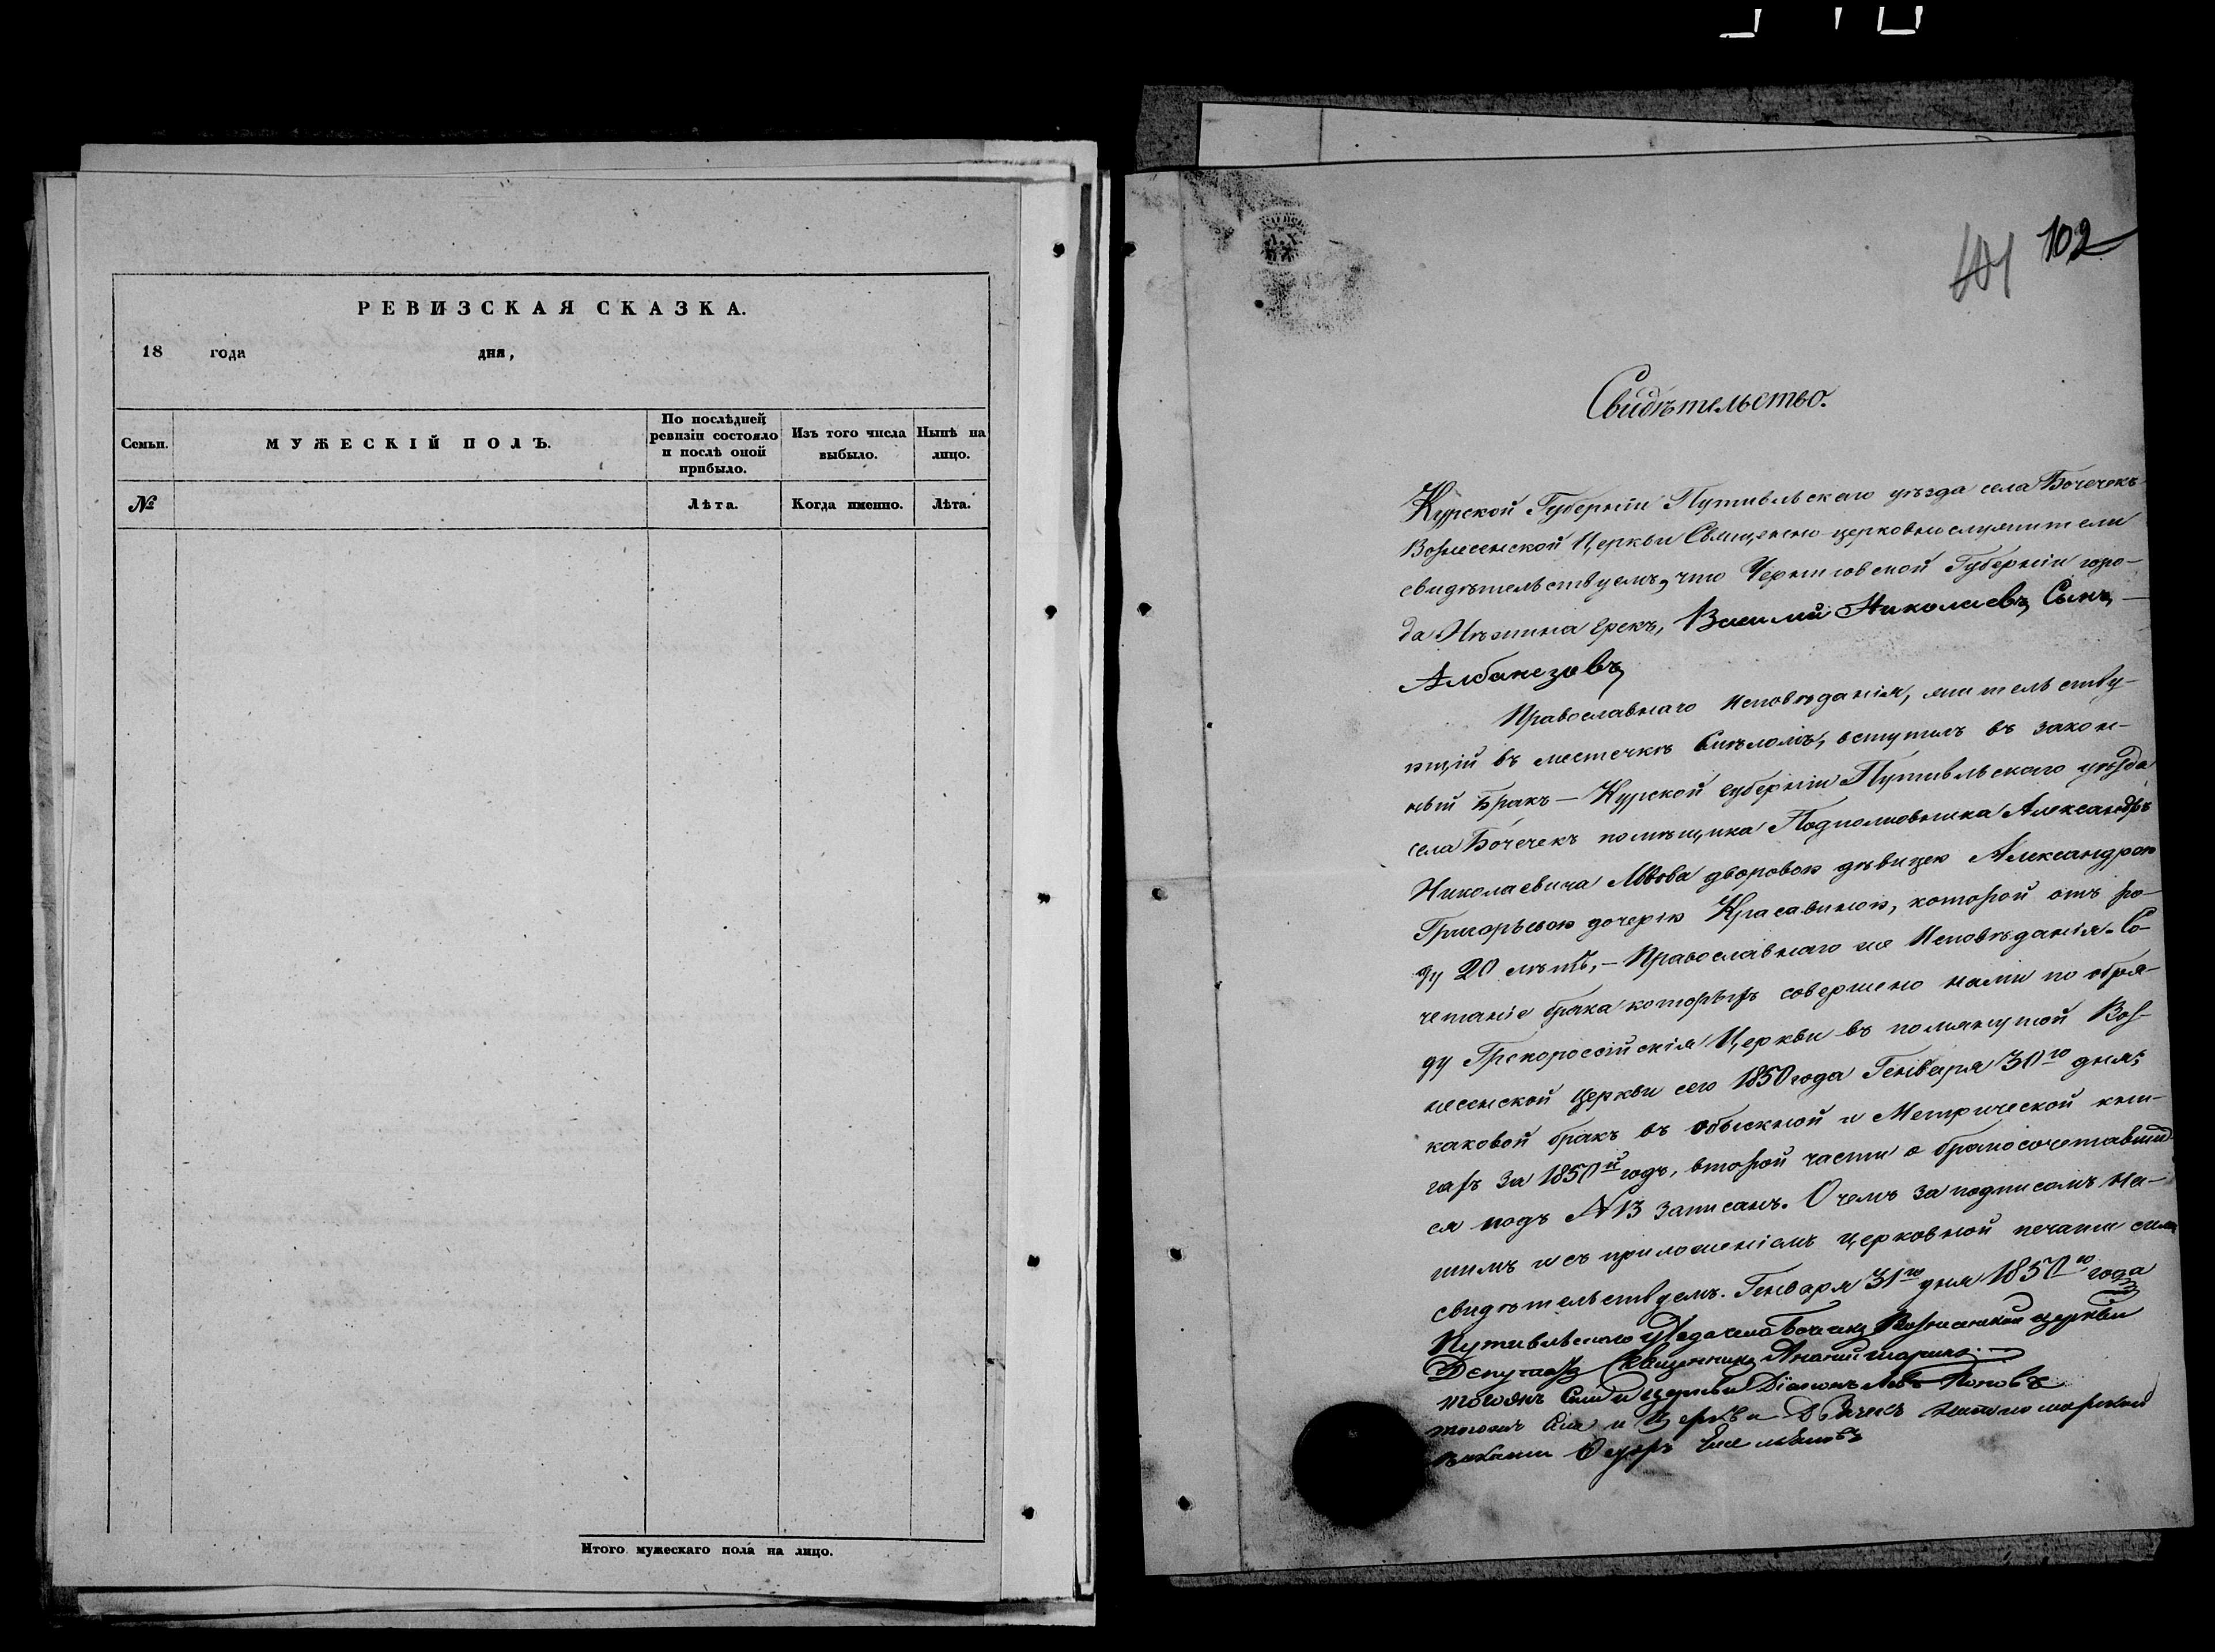 РЕВИЗСКАЯ СКАЗКА.
18 года дня,
Семьи. МУЖЕСКІЙ ПОЛЪ. По послѣдней ревизіи состояло и послѣ оной прибыло. Изъ того числа выбыло. Нынѣ на лицо.
№ Лѣта. Когда именно. Лѣта.
Итого мужескаго пола на лицо.
101 102
Свидѣтельство.
Курской Губерніи Путивльскаго уѣзда села Бочечекъ
Вознесенской Церкви Священно церковнослужители
свидѣтельствуемъ, что Черниговской Губерніи горо-
да Нѣжина грекъ, Василій Николаевъ Сынъ
Албанезовъ
Православнаго Исповѣданія, жительству-
ющій въ местечкѣ Смѣломъ, вступилъ въ закон-
ный Бракъ — Курской губерніи Путивльскаго уѣзда
села Бочечекъ помѣщика Подполковника Александра
Николаевича Львова дворовою дѣвицею Александрою
Григорьевою дочерію Красавиною, которой отъ ро-
ду 20 лѣтъ, — Православнаго же Исповѣданія. Со-
четаніе брака которыхъ совершено нами по обря-
ду Грекороссійскія Церкви въ помянутой Воз-
несенской церкви сего 1850 года Генваря 30го дня;
каковой бракъ въ обыскной и Метрической кни-
гахъ за 1850й годъ, второй части о бракосочетавших
ся подъ №13 записанъ. О чемъ за подписомъ на-
шимъ и съ приложеніемъ церковной печати симъ
свидѣтельствуемъ. Генваря 31го дня 1850го года
Путивльскаго уѣзда села Бочечекъ Вознесенской церкви
Депутатъ Священникъ Ананій
тоеяжъ церкви Діаконъ Левъ Поповъ
тоеяжъ церкви Дьячекъ